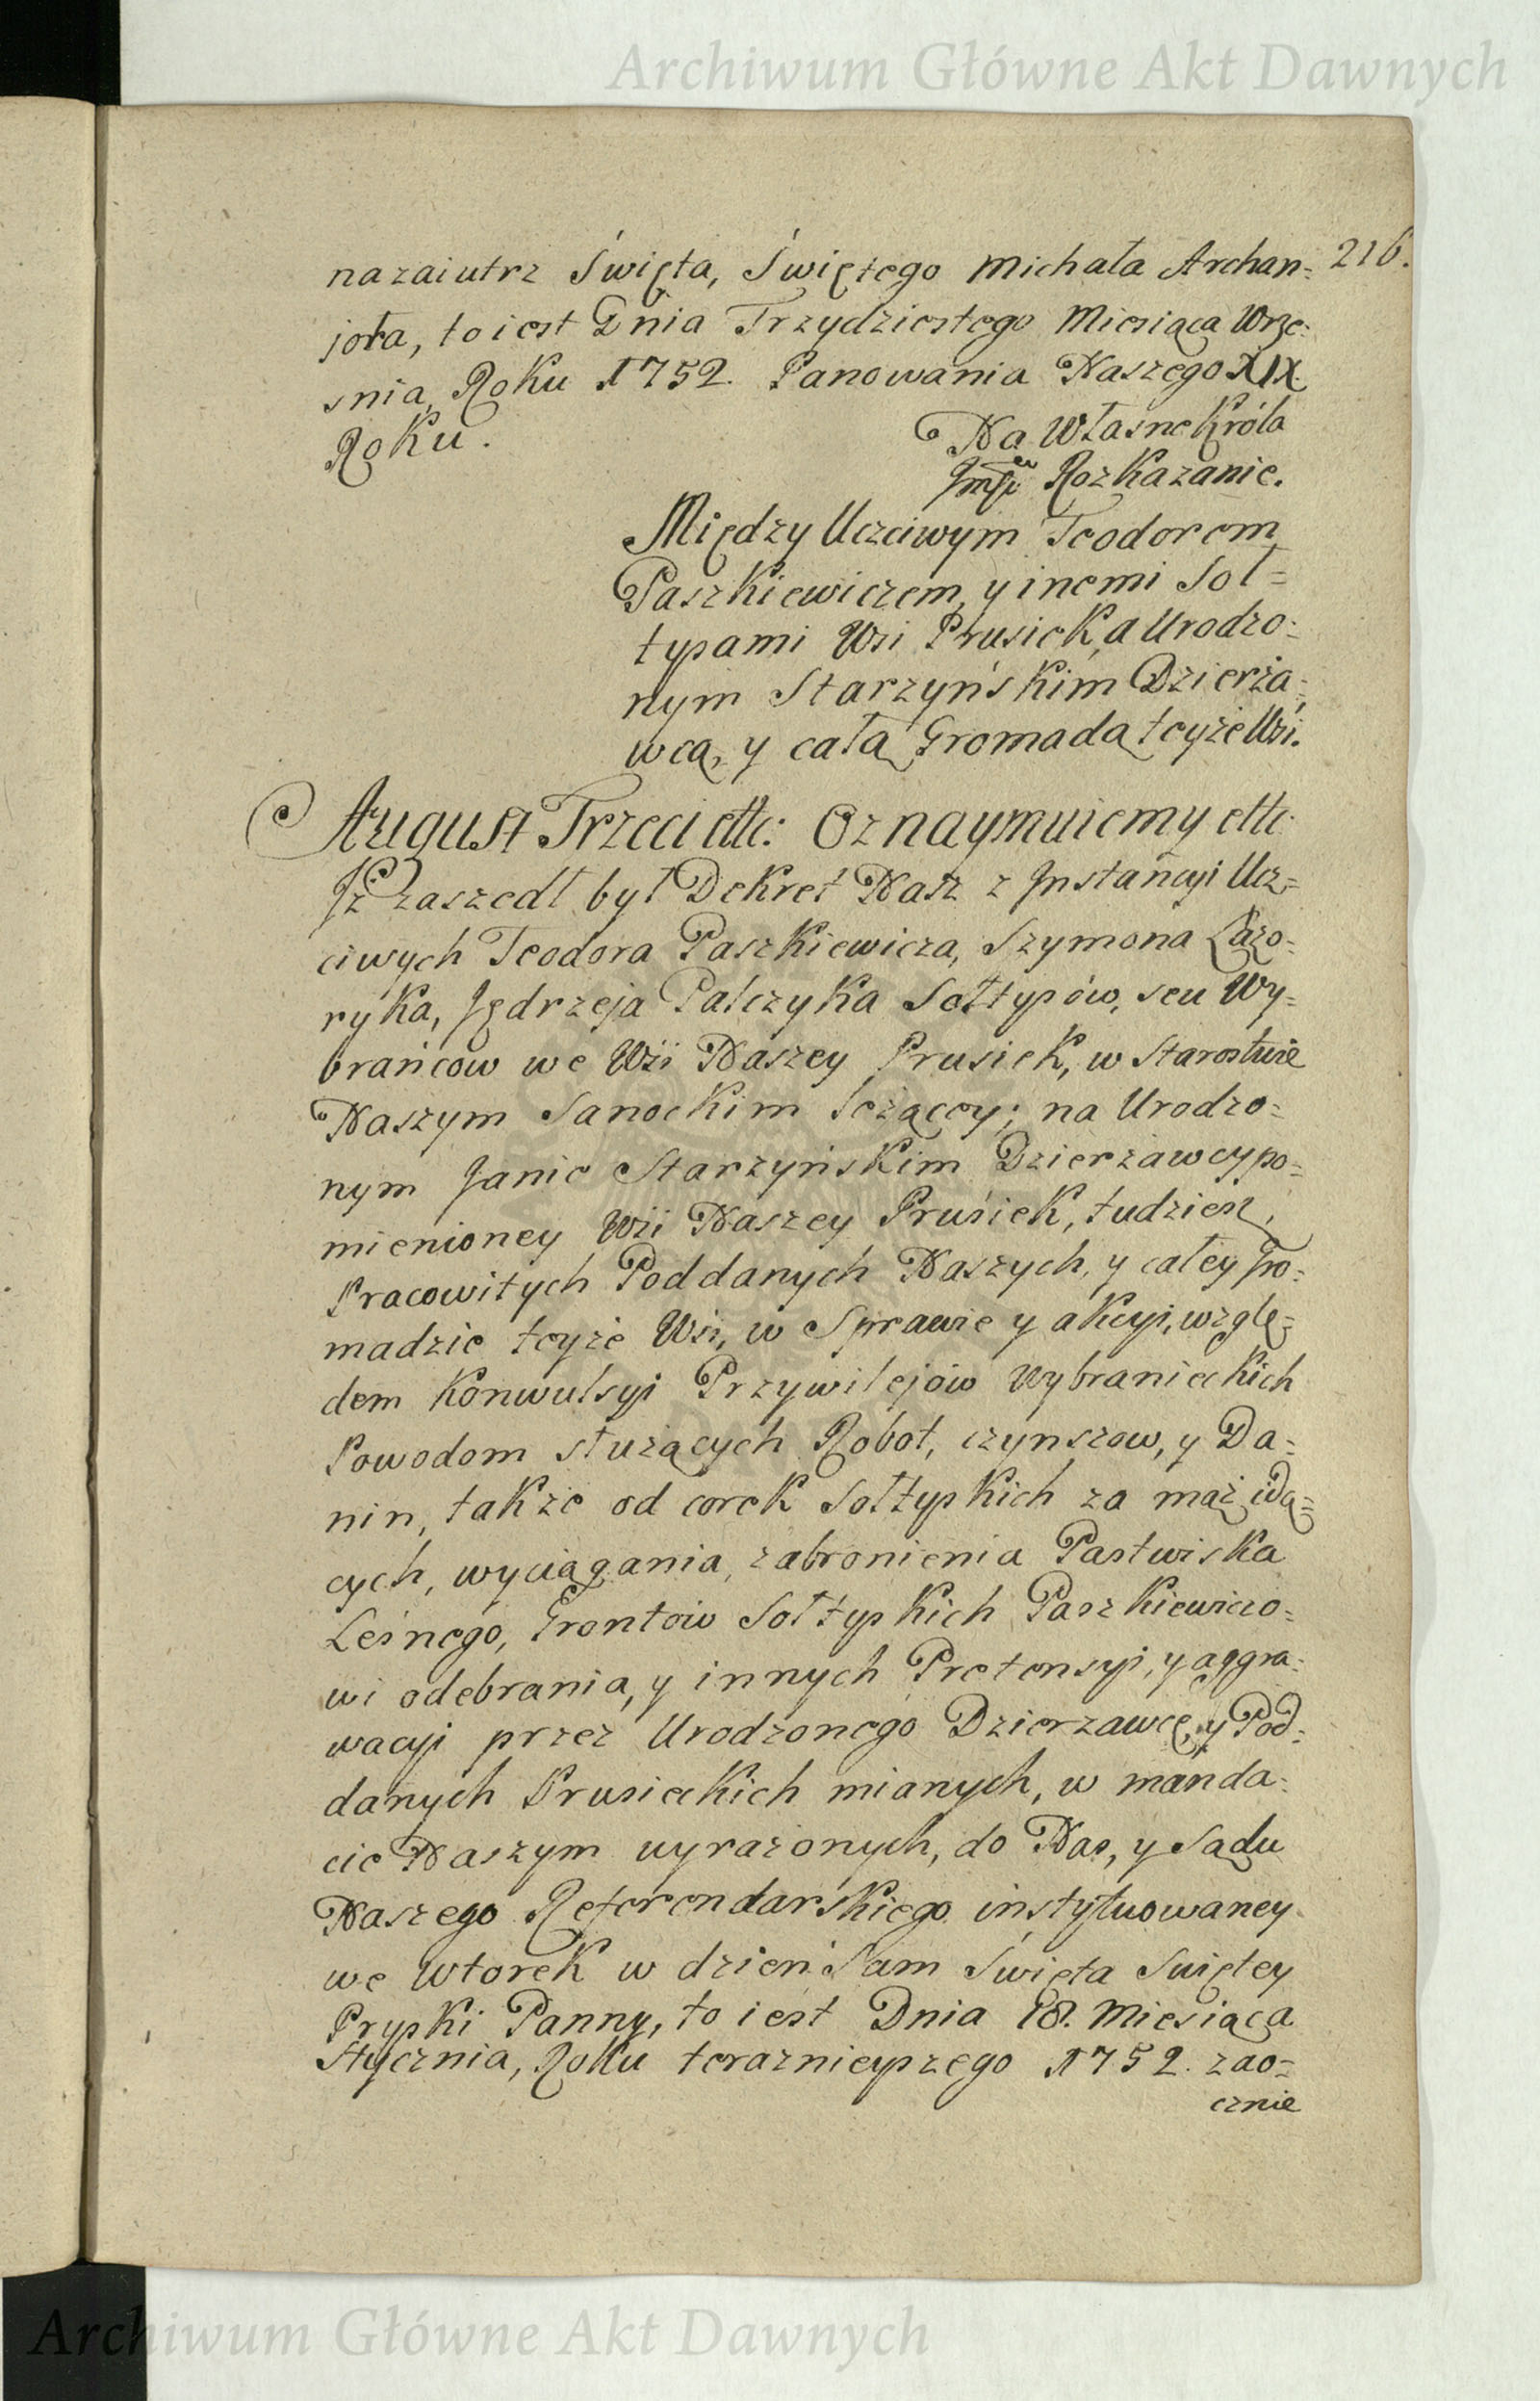 Archiwum Główne Akt Dawnych
216.
nazaiutrz Święta, Świętego Michała Archan=
joła, to iest Dnia Trzydziestego Miesiąca Wrze=
snia, Roku 1752. Panowania Naszego XIX.
Roku.
Na Własne Króla
Rozkazanie.
Między Uczciwym Teodorem
Paszkiewiczem, y inemi Soł=
tysami Wsi Prusiek, a Urodzo=
nym Starzyńskim Dzierża=
wcą, y całą Gromadą teyże Wsi.
August Trzeci etc: Oznaymuiemy etc:
Iż zaszedł był Dekret Nasz z Instancyi Ucz=
ciwych Teodora Paszkiewicza, Szymona Łazo=
ryka, Jędrzeja Palczyka Sołtysów, seu Wy=
brańców we Wsi Naszey Prusiek, w Starostwie
Naszym Sanockim leżącey; na Urodzo=
nym Janie Starzyńskim Dzierzawcy po=
mienioney Wsi Naszey Prusiek, tudziesz,
Pracowitych Poddanych Naszych, y całey Gro=
madzie teyże Wsi, w Sprawie y akcyi, wzglę=
dem Konwulsyi Przywilejów Wybranieckich
Powodom służących Robot, czynszow, y Da=
nin, także od corek Sołtyskich za mąż idą=
cych, wyciągania, zabronienia Pastwiska
Leśnego, Grontów Sołtyskich Paszkiewiczo=
wi odebrania, y innych Pretensyi, y aggra=
wacyi przez Urodzonego Dzierzawcę, y Pod=
danych Prusieckich mianych, w manda=
cie Naszym wyrażonych, do Nas, y Sądu
Naszego Referendarskiego instytuowaney
we Wtorek w dzień Sam Święta Swiętey
Pryski Panny, to iest Dnia 18. Miesiąca
Stycznia, Roku teraznieyszego 1752. zao=
cznie
Archiwum Główne Akt Dawnych